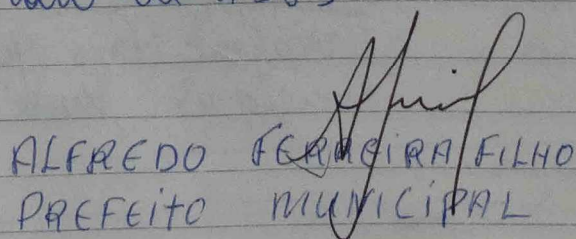 de
ALFREDO FERREIRA FILHO
PREFEITO MUNICIPAL